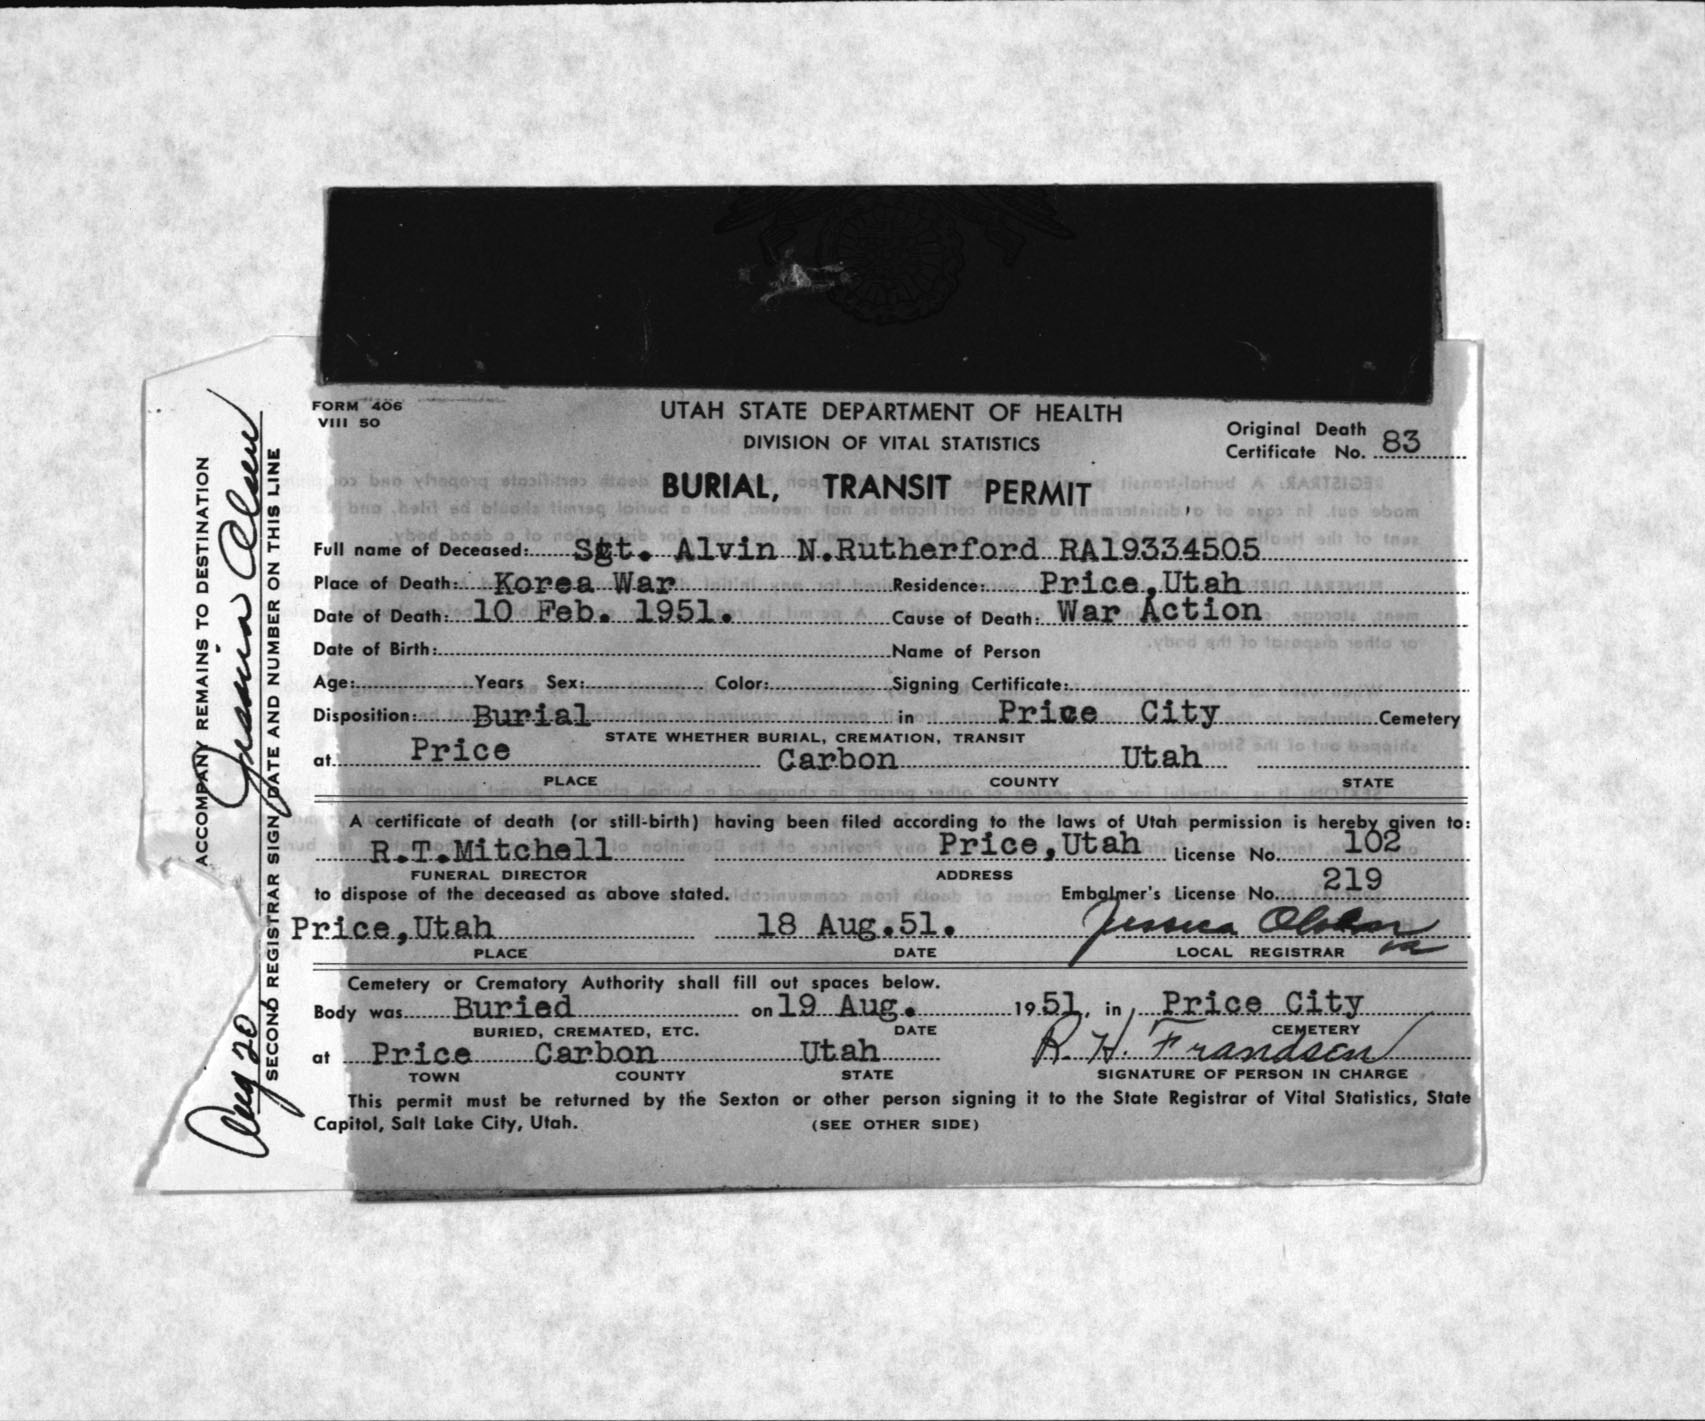 FORM 406
VIII 50
UTAH STATE DEPARTMENT OF HEALTH
DIVISION OF VITAL STATISTICS
Original Death
Certificate No. 83
BURIAL, TRANSIT PERMIT
Full name of Deceased: Sgt. Alvin N.Rutherford RA19334505
Place of Death: Korea War Residence: Price,Utah
Date of Death: 10 Feb. 1951. Cause of Death: War Action
Date of Birth: Name of Person
Age: Years Sex: Color: Signing Certificate:
Disposition: Burial in Price City Cemetery
STATE WHETHER BURIAL, CREMATION, TRANSIT
at Price Carbon Utah
PLACE COUNTY STATE
A certificate of death (or still-birth) having been filed according to the laws of Utah permission is hereby given to:
R.T.Mitchell Price,Utah License No. 102
FUNERAL DIRECTOR ADDRESS
to dispose of the deceased as above stated. Embalmer's License No. 219
Price,Utah 18 Aug.51. Jessica Olsen
PLACE DATE LOCAL REGISTRAR
Cemetery or Crematory Authority shall fill out spaces below.
Body was Buried on 19 Aug. 1951, in Price City
BURIED, CREMATED, ETC. DATE CEMETERY
at Price Carbon Utah R. H. Frandsen
TOWN COUNTY STATE SIGNATURE OF PERSON IN CHARGE
This permit must be returned by the Sexton or other person signing it to the State Registrar of Vital Statistics, State
Capitol, Salt Lake City, Utah. (SEE OTHER SIDE)
ACCOMPANY REMAINS TO DESTINATION
Aug 20 Jessica Olsen
SECOND REGISTRAR SIGN, DATE AND NUMBER ON THIS LINE